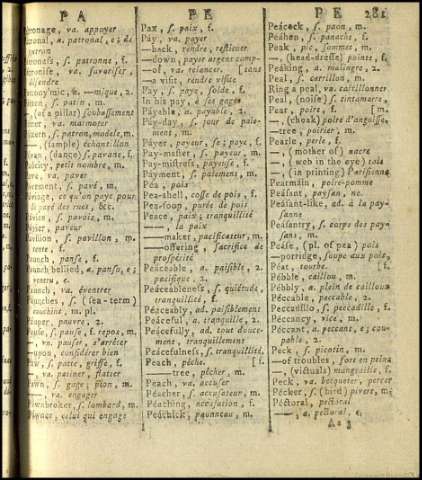 PA PE PE 281
onage, va. appuyer
onal, a. patronal, e; de
patron
oness, s. patronne, f.
onise, va. favoriser,
défendre
ony'mic, &—mique, 2.
en, s. patin, m.
(of a pillar) soubassement
ern, s. patron, modele, m.
—, (sample) échantillon
an, (dance) s. pavane, f.
ucity, petit nombre, m.
ve, va. paver
vement, s. pavé, m.
viage, ce qu'on paye pour
paver des rues, &c.
s. pavois, m.
s. paveur
ilion, s. pavillon, m.
tente, f.
unch, panse, f.
unch bellied, a. pansu, e;
ventru, e
unch, va. éventrer
unches, s. (sea-term)
m. pl.
uper, pauvre, 2.
use, s. pause, f. repos, m.
vn. pauser, s'arrêter
—upon, considérer bien
w, s. patte, griffe, f.
—, va. patiner, flatter
wn, s. gage, pion, m.
—, va. engager
wnbroker, s. lombard, m.
wner, celui qui engage
Pax, s. paix, f.
Pay, va. payer
—back, rendre, restituer
—down, payer argent comp-
—of, va. relancer. [tant
—a visit, rendre visite
Pay, s. paye, solde, f.
In his pay, à ses gages
Páyable, a. payable, 2.
Pay-day, s. jour de paie-
ment, m.
Páyer, payeur, se; paye, f.
Pay-master, s. payeur, m.
Pay-mistress, payeuse, f.
Páyment, s. paiement, m.
Pea, pois
Pea-shell, cosse de pois, f.
Pea-soop, purée de pois
Peace, paix; tranquillité
—— la paix
—maker, pacificateur, m.
—offering, sacrifice de
prospérité
Péaceable, a. paisible, 2.
pacifique, 2.
Péaceableness, s. quiétude,
tranquillité, f.
Péaceably, ad. paisiblement
Péaceful, a. tranquille, 2.
Péacefully, ad. tout douce-
ment, tranquillement
Péacefulness, s. tranquillité.
Peach, pêche, f. [f.
—tree, pêcher, m.
Peach, va. accuser
Péacher, s. accusateur, m.
Péaching, accusation, f.
Péachick, paonneau, m.
Péacock, s. paon, m.
Péahen, s. panache, f.
Peak, pic, sommet, m.
—, (head-dresse) pointe, f.
Péaking, a. malingre, 2.
Peal, s. carrillon, m.
Ring a peal, va. carillonner
Peal, (noise) s. tintamarre,
Pear, poire, f. [m.
—, (choak) poire d'angoisse,
—tree, poirier, m.
Pearle, perle, f.
—, (mother of) nacre
—, (web in the eye) toie
—, (in printing) Parisienne
Pearmain, poire-pomme
Péasant, paysan, ne.
Péasant-like, ad. à la pay-
sanne
Péasantry, s. corps des pay-
sans, m.
Pease, (pl. of pea) pois
—porridge, soupe aux pois,
Peat, tourbe. [f.
Pébble, caillou, m.
Pébbly, a. plein de cailloux
Péccable, peccable, 2.
Peccadillo, s. peccadille, f.
Péccancy, vice, m.
Péccant, a. peccant, e; cou-
pable, 2.
Peck, s. picotin, m.
—of troubles, fort en peine
—, (victuals) mangeaille, f.
Peck, va. becqueter, percer
Pécker, s. (bird) pivert, m.
Péctoral, pectoral
—, a. pectoral, e.
Aa 3